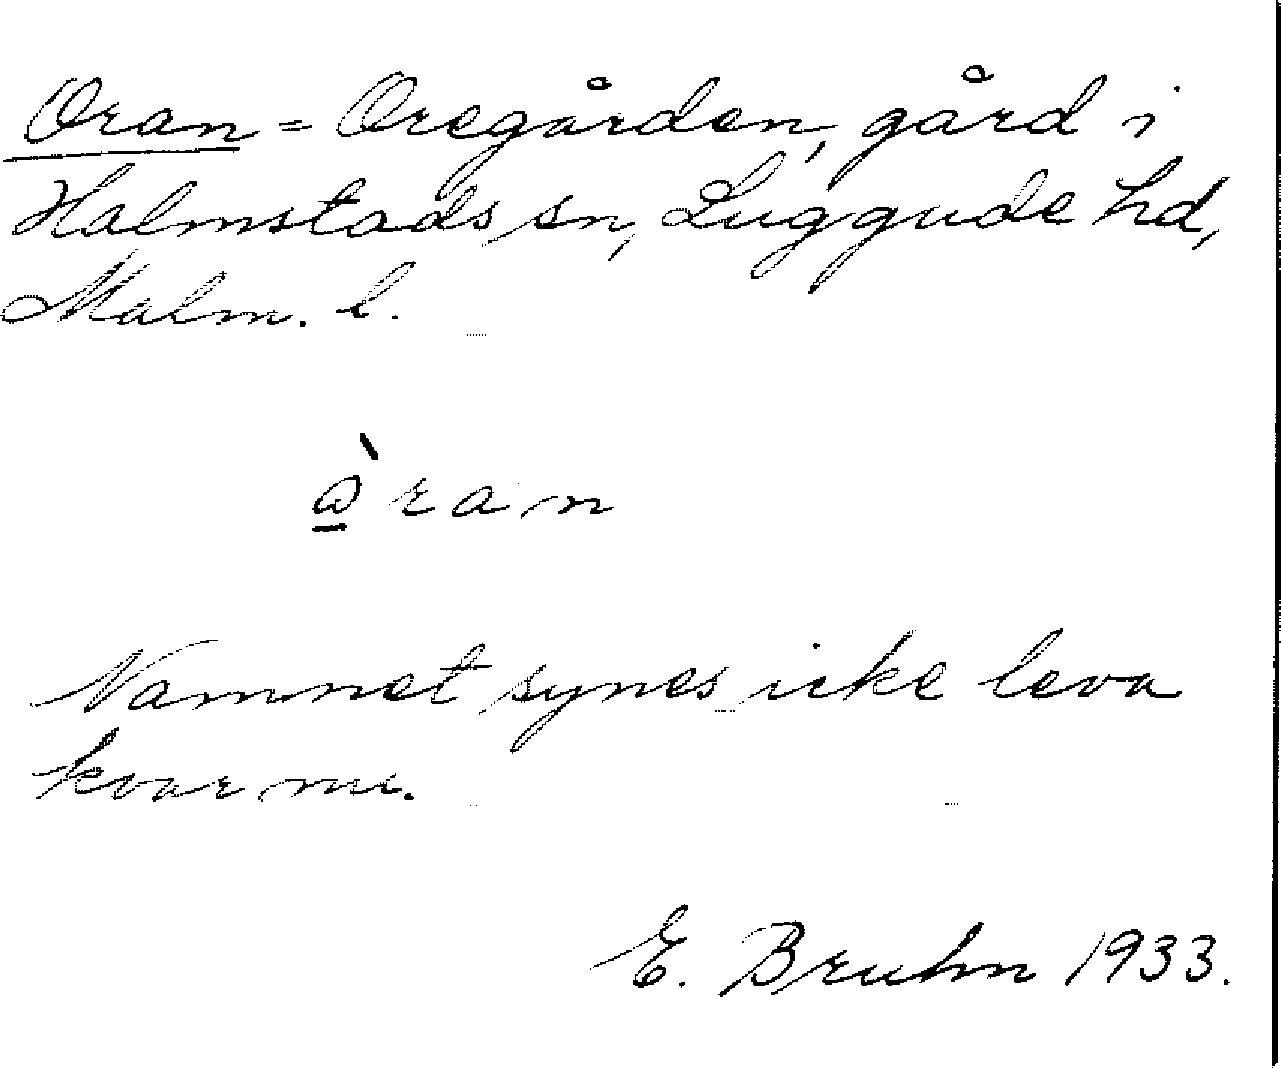 Oran = Oregården, gård i
Halmstads sn, Luggude hd,
Malm. l.
ran
Namnet synes icke leva
kvar nu.
E. Bruhn 1933.